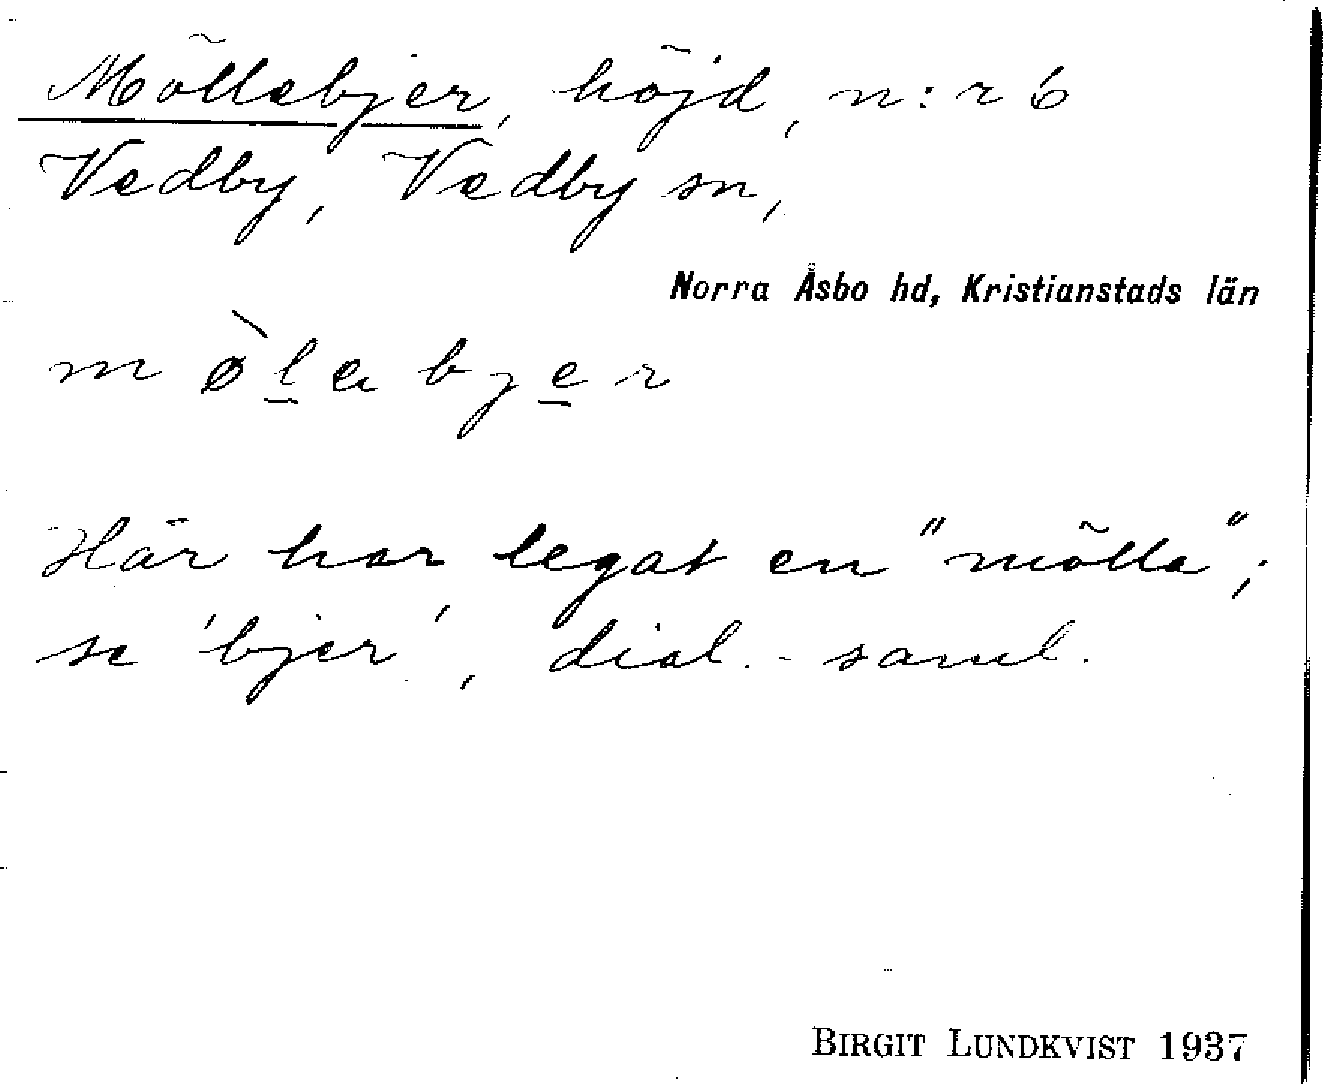 Möllebjer, höjd, n:r 6
Vedby, Vedby sn,
Norra Åsbo hd, Kristianstads län
mø̀l̲abje̲r
Här har legat en "mölla";
se 'bjer', dial.-saml.
BIRGIT LUNDKVIST 1937